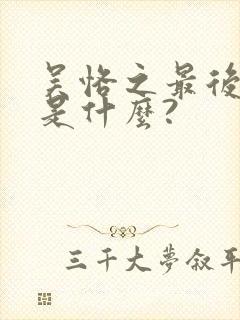 吴恪之最後
是什麼?
三千大夢叙平